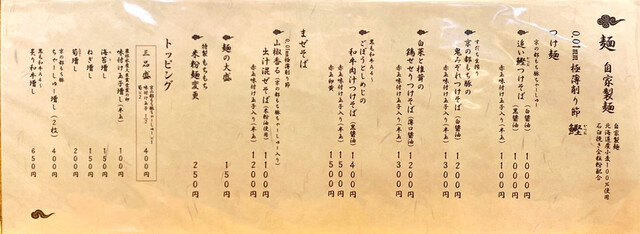 麺 自家製麺
自家製麺
北海道産小麦100%使用
石臼挽き全粒粉配合
0.01mm極薄削り節 鰹
つけ麺
京の都もち豚ちゃーしゅー入り
追い鰹つけそば(白醤油) 1000円
追い鰹つけそば(黒醤油) 1000円
赤玉味付け玉子入り(半玉) 1100円
すだち生搾り
京の都もち豚の
鬼みぞれつけそば(白醤油) 1200円
赤玉味付け玉子入り(半玉) 1300円
白菜と浅葱の
鶏せせりつけそば(薄口醤油) 1200円
赤玉味付け玉子入り(半玉) 1300円
黒毛和牛A4・5
ごぼうとしめじの
和牛肉汁つけそば(黒醤油) 1400円
赤玉味付け玉子入り(半玉) 1500円
赤玉卵黄 1500円
まぜそば
0.01mm極薄削り節
山椒香る(京の都もち豚ちゃーしゅー入り)
出汁混ぜそば(米粉油使用) 1100円
赤玉味付け玉子入り(半玉) 1200円
麺の大盛 150円
特製もちもち
米粉麺変更 250円
トッピング
三品盛 400円
味付け玉子増し(半玉) 100円
海苔増し 150円
ねぎ増し 150円
筍増し 200円
京の都もち豚
ちゃーしゅー増し(2枚) 400円
黒毛和牛A4・5
炙り和牛増し 650円